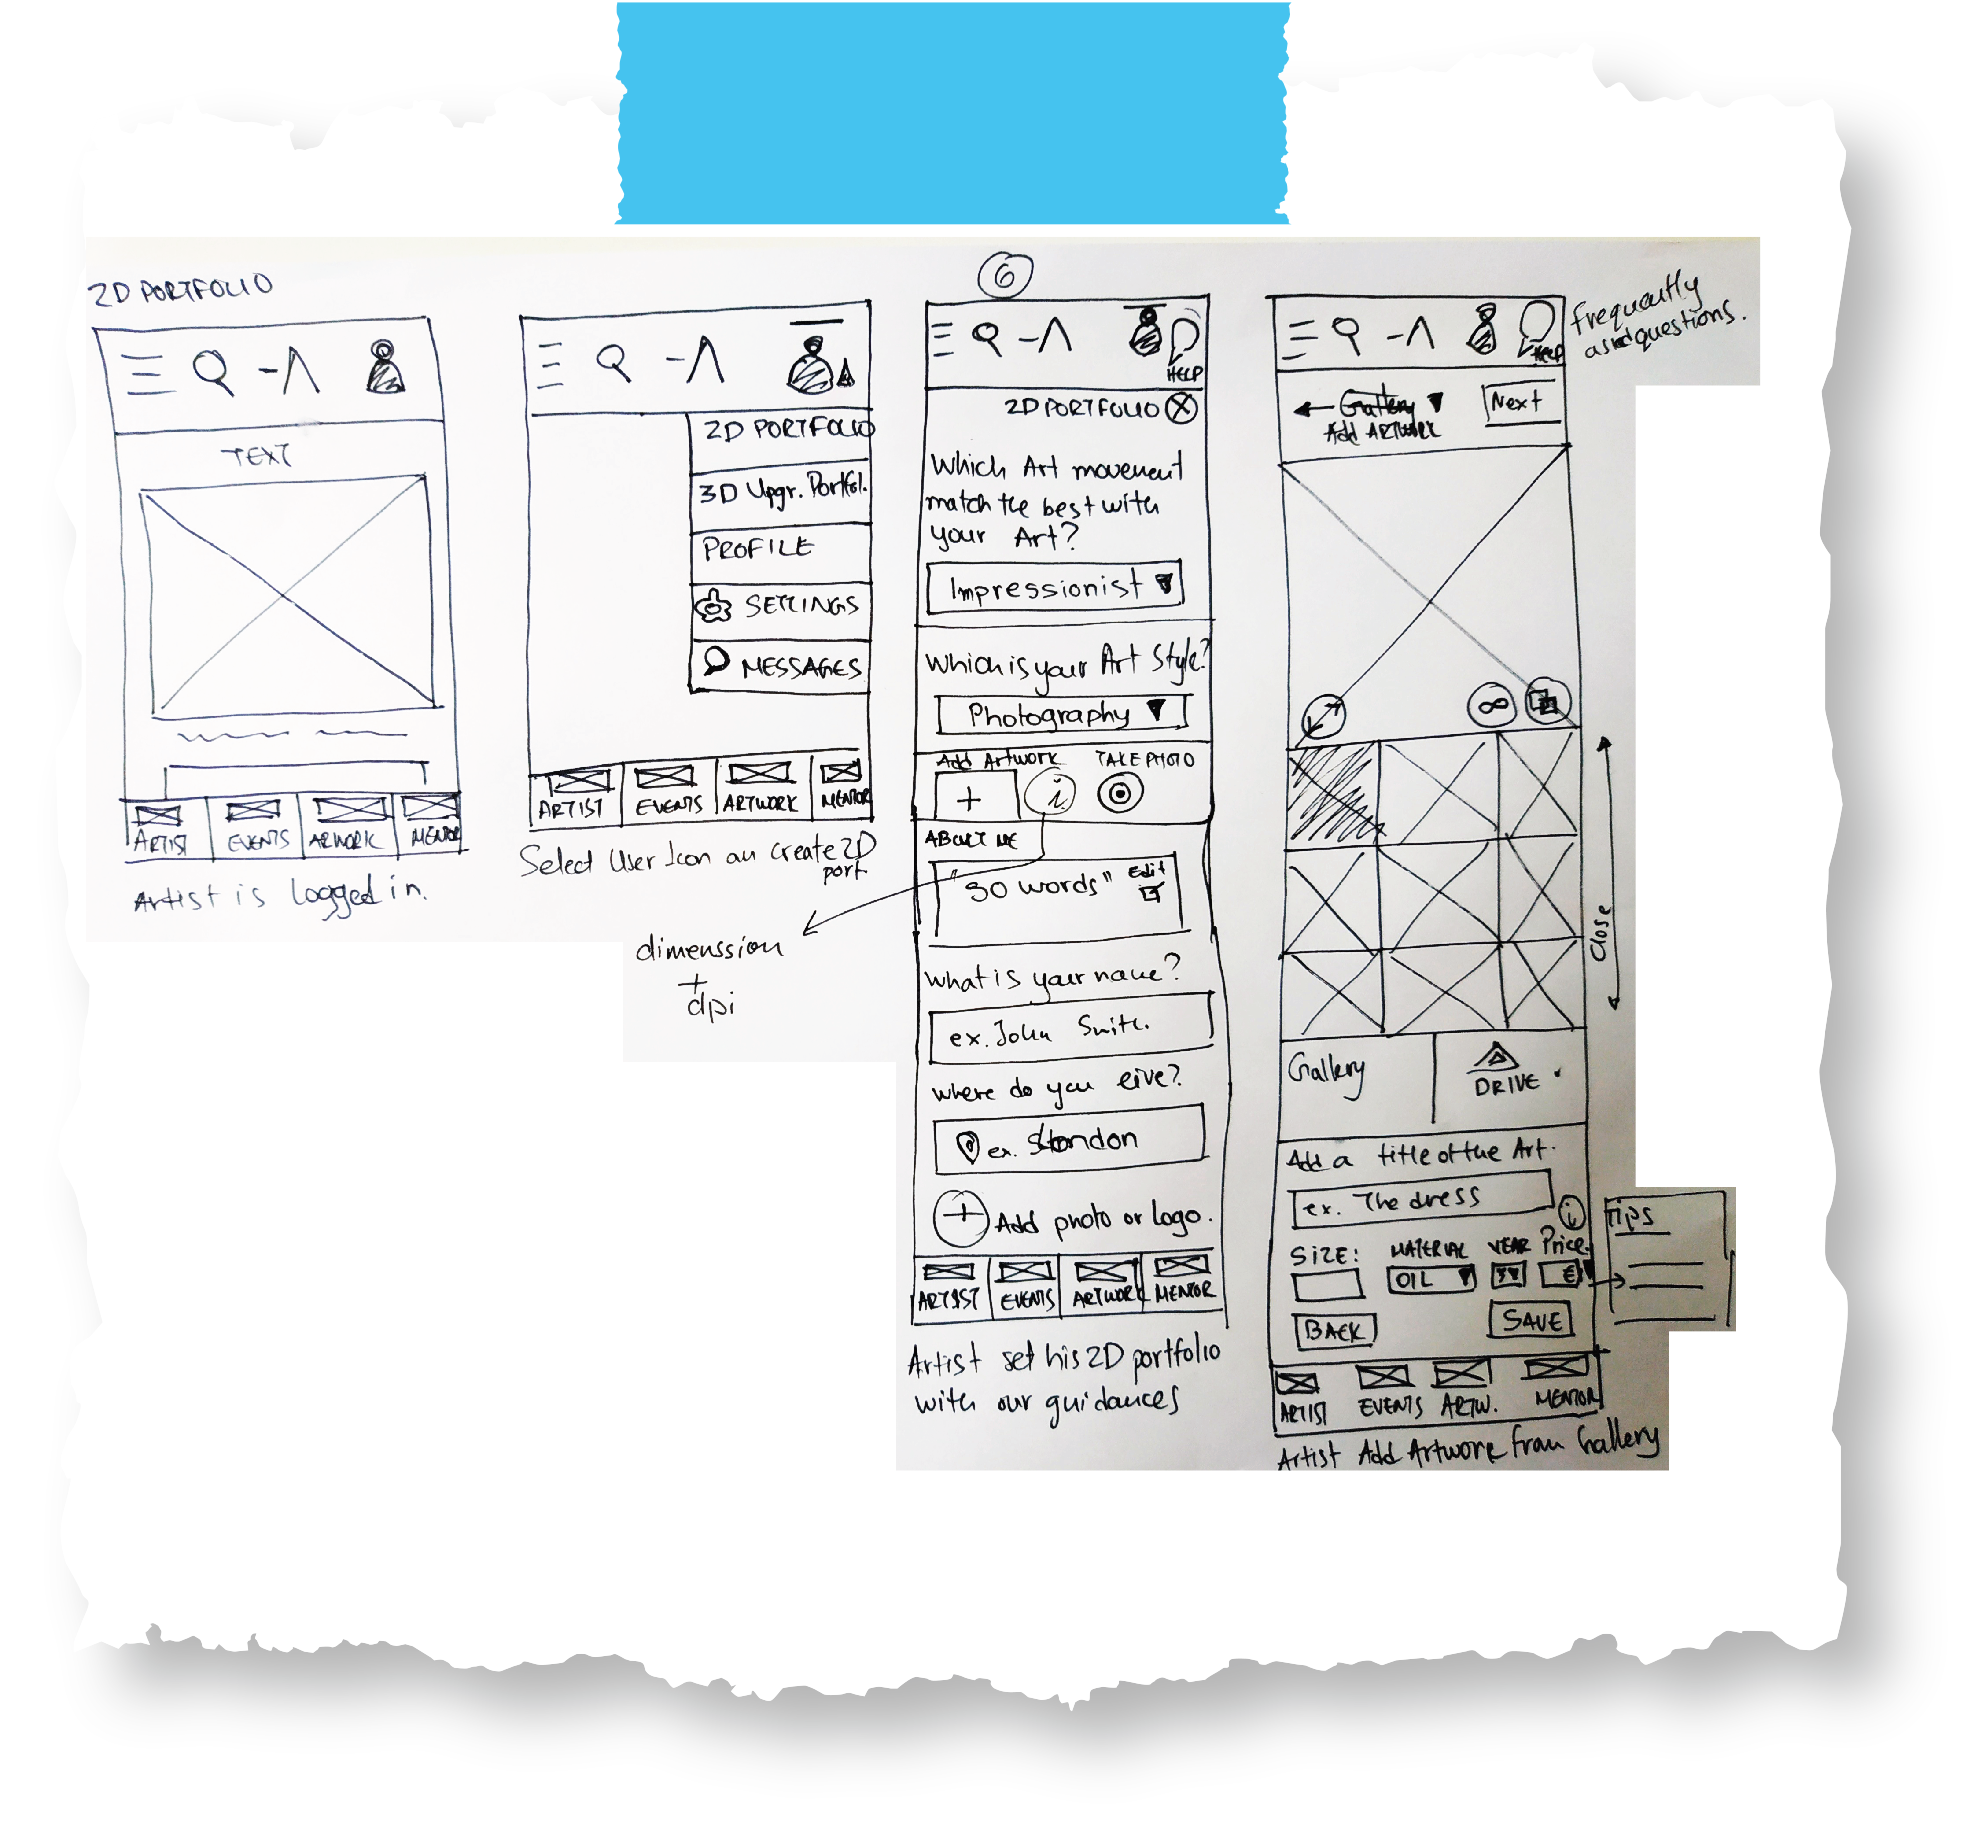 2D PORTFOLIO
TEXT
ARTIST
EVENTS
ARWORK
MENTOR
Artist is logged in.
2D PORTFOLIO
3D Upgr. Portfol.
PROFILE
SETTINGS
MESSAGES
ARTIST
EVENTS
ARTWORK
MENTOR
Select User Icon an create 2D
port
6
HELP
2D PORTFOLIO
Which Art movement
match the best with
your Art?
Impressionist
Which is your Art Style?
Photography
Add Artwork
TAKE PHOTO
+
i
ABOUT ME
"30 words"
Edit
dimenssion
+
dpi
What is your name?
ex. John Smith.
where do you live?
ex. London
+ Add photo or logo.
ARTIST
EVENTS
ARTWORK
MENTOR
Artist set his 2D portfolio
with our guidances
HELP
frequently
asked questions.
Gallery
Add ARTWORK
Next
Close
Gallery
DRIVE
Add a title of the Art.
ex. The dress
i
Tips
SIZE:
MATERIAL
YEAR
Price
OIL
€
BACK
SAVE
ARTIST
EVENTS
ARTW.
MENTOR
Artist Add Artwork from Gallery